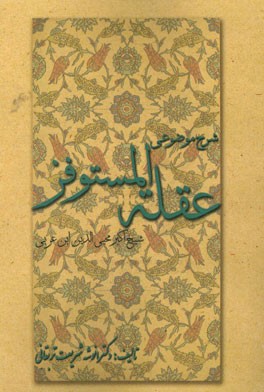 شرح موضوعی
عقلة المستوفز
شیخ اکبر محیی الدین ابن عربی
تألیف: دکتر